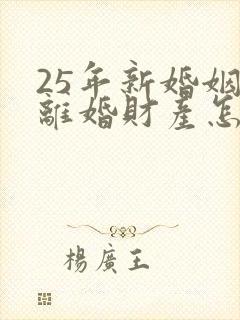 25年新婚姻
離婚財產怎
楊廣王